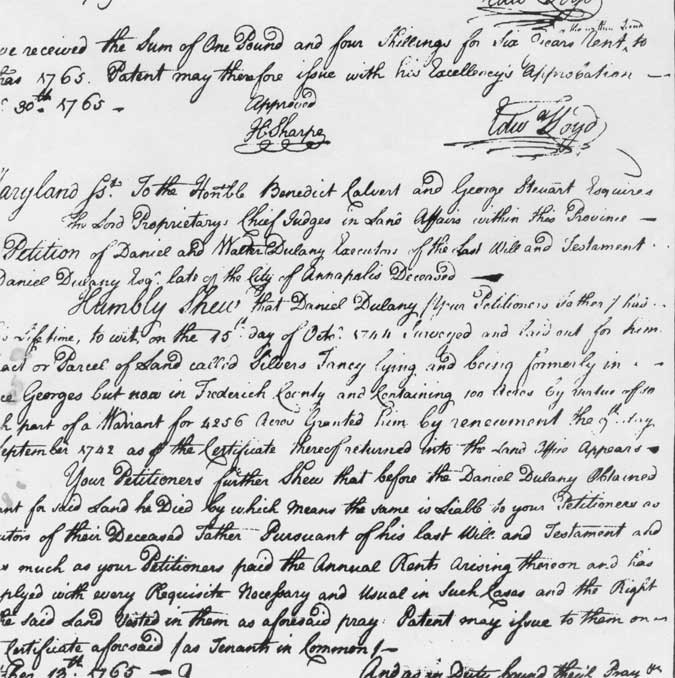 Edwd Lloyd
ve received the Sum of One Pound and four Shillings for Six Years Rent to
tas 1765. Patent may therefore issue with his Excellency's Approbation —
30th 1765 —
Approved
H Sharpe
Edwd Lloyd
aryland Ss. To the Honble Benedict Calvert and George Steuart Esquires
Lord Proprietarys Chief Judges in Land Affairs within this Province —
Petition of Daniel and Walter Dulany Executors of the Last Will and Testament
Daniel Dulany Esqr. late of the City of Annapolis Deceased —
Humbly Shew that Daniel Dulany (Your Petitioners Father) had
s Lifetime, to wit, on the 15th day of Octr. 1744 Surveyed and laid out for him
act or Parcel of Land called Silvers Fancy lying and being formerly in
ce Georges but now in Frederick County and Containing 100 Acres by virtue of so
h part of a Warrant for 4256 Acres Granted him by renewment the 9th day
September 1742 as the Certificate thereof returned into the Land Office Appears —
Your Petitioners further Shew that before the Daniel Dulany Obtained
nt for said Land he Died by which Means the same is Liable to your Petitioners as
utors of their Deceased Father Pursuant of his last Will and Testament and
s much as your Petitioners paid the Annual Rents Arising thereon and has
mplyed with every Requisite Necessary and Usual in Such Cases and the Right
he said Land Vested in them as aforesaid pray Patent may issue to them on
Certificate aforesaid (as Tenants in Common) —
13th 1765 —
And as in Duty bound they'l Pray &c